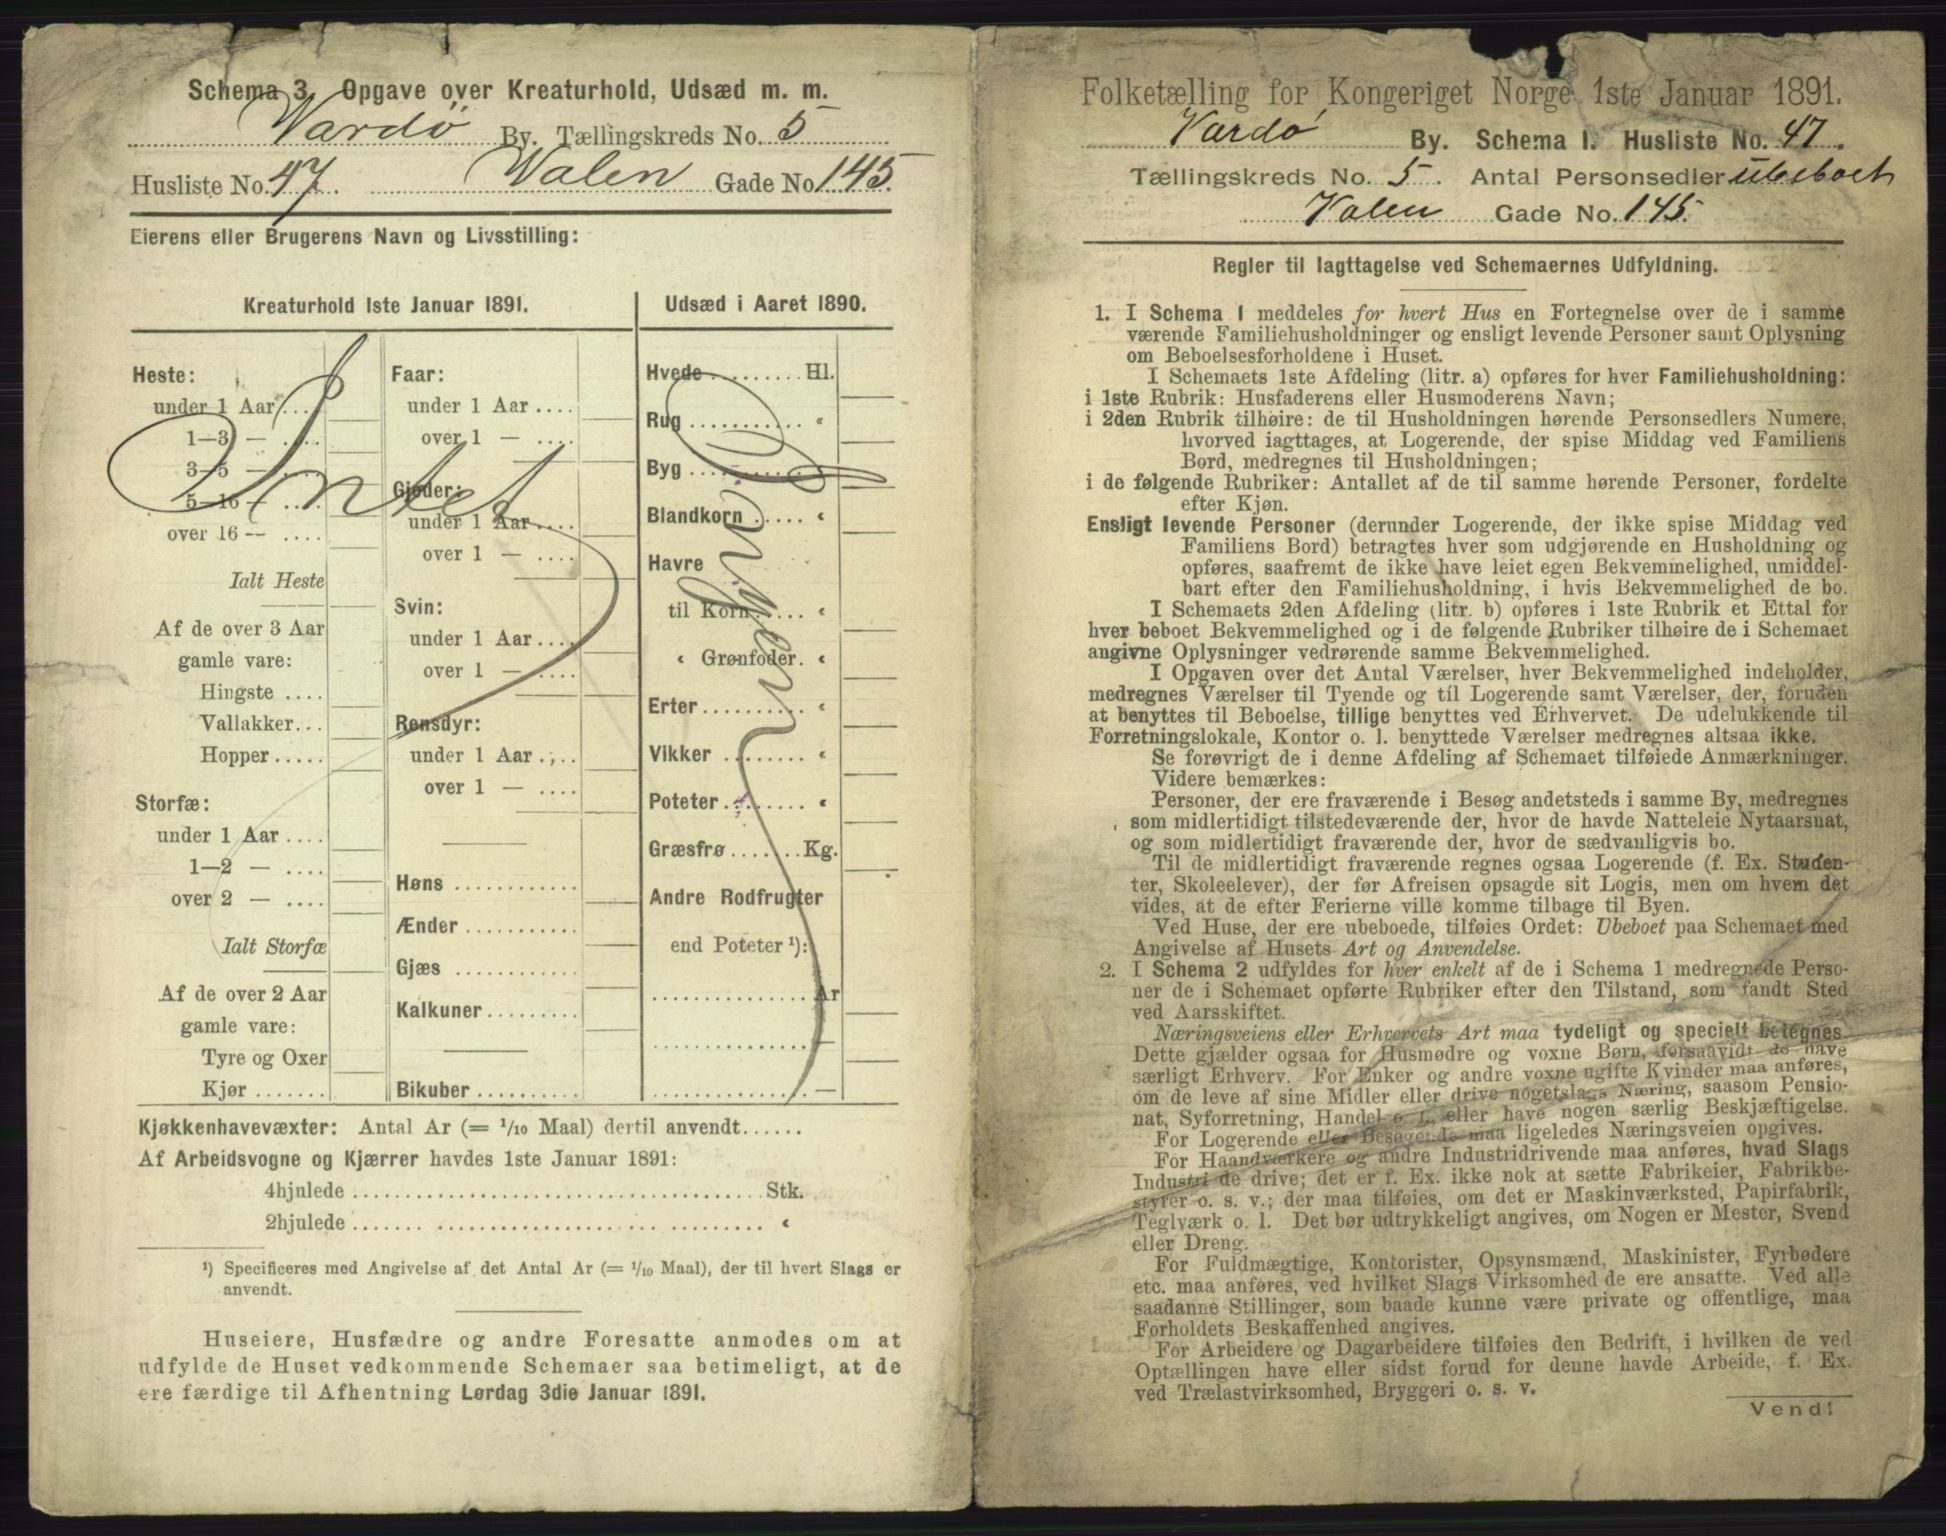 Schema 3. Opgave over Kreaturhold, Udsæd m. m.
Vardö By. Tællingskreds No. 5
Husliste No. 47. Valen Gade No 145.
Eierens eller Brugerens Navn og Livsstilling:
Kreaturhold 1ste Januar 1891.
Heste:
under 1 Aar....
1—3 — ....
3—5 — ....
5—16 — ....
over 16 — ....
Ialt Heste
Af de over 3 Aar
gamle vare:
Hingste ....
Vallakker...
Hopper.....
Storfæ:
under 1 Aar ....
1—2 — ....
over 2 — ....
Ialt Storfæ
Af de over 2 Aar
gamle vare:
Tyre og Oxer
Kjør .......
Intet
Faar:
under 1 Aar ....
over 1 — ....
Gjeder:
under 1 Aar....
over 1 — ....
Svin:
under 1 Aar....
over 1 — ....
Rensdyr:
under 1 Aar ....
over 1 — ....
Høns ............
Ænder ...........
Gjæs ............
Kalkuner.........
Bikuber ..........
Udsæd i Aaret 1890.
Hvede......... Hl.
Rug .......... «
Byg .......... «
Blandkorn ..... «
Havre
til Korn..... «
« Grønfoder. «
Erter......... «
Vikker ........ «
Poteter ....... «
Græsfrø...... Kg.
Andre Rodfrugter
end Poteter ¹):
.............. Ar
.............. —
.............. —
Kjøkkenhavevæxter: Antal Ar (= 1/10 Maal) dertil anvendt......
Af Arbeidsvogne og Kjærrer havdes 1ste Januar 1891:
4hjulede ...................................... Stk.
2hjulede ...................................... «
¹) Specificeres med Angivelse af det Antal Ar (= 1/10 Maal), der til hvert Slags er
anvendt.
Huseiere, Husfædre og andre Foresatte anmodes om at
udfylde de Huset vedkommende Schemaer saa betimeligt, at de
ere færdige til Afhentning Lørdag 3die Januar 1891.
Folketælling for Kongeriget Norge 1ste Januar 1891.
Vardö By. Schema I. Husliste No. 47.
Tællingskreds No. 5. Antal Personsedler ubeboet
Valen Gade No. 145.
Regler til Iagttagelse ved Schemaernes Udfyldning.
1. I Schema I meddeles for hvert Hus en Fortegnelse over de i samme
værende Familiehusholdninger og ensligt levende Personer samt Oplysning
om Beboelsesforholdene i Huset.
I Schemaets 1ste Afdeling (litr. a) opføres for hver Familiehusholdning:
i 1ste Rubrik: Husfaderens eller Husmoderens Navn;
i 2den Rubrik tilhøire: de til Husholdningen hørende Personsedlers Numere,
hvorved iagttages, at Logerende, der spise Middag ved Familiens
Bord, medregnes til Husholdningen;
i de følgende Rubriker: Antallet af de til samme hørende Personer, fordelte
efter Kjøn.
Ensligt levende Personer (derunder Logerende, der ikke spise Middag ved
Familiens Bord) betragtes hver som udgjørende en Husholdning og
opføres, saafremt de ikke have leiet egen Bekvemmelighed, umiddel-
bart efter den Familiehusholdning, i hvis Bekvemmelighed de bo.
I Schemaets 2den Afdeling (litr. b) opføres i 1ste Rubrik et Ettal for
hver beboet Bekvemmelighed og i de følgende Rubriker tilhøire de i Schemaet
angivne Oplysninger vedrørende samme Bekvemmelighed.
I Opgaven over det Antal Værelser, hver Bekvemmelighed indeholder,
medregnes Værelser til Tyende og til Logerende samt Værelser, der, foruden
at benyttes til Beboelse, tillige benyttes ved Erhvervet. De udelukkende til
Forretningslokale, Kontor o. l. benyttede Værelser medregnes altsaa ikke.
Se forøvrigt de i denne Afdeling af Schemaet tilføiede Anmærkninger.
Videre bemærkes:
Personer, der ere fraværende i Besøg andetsteds i samme By, medregnes
som midlertidigt tilstedeværende der, hvor de havde Natteleie Nytaarsnat,
og som midlertidigt fraværende der, hvor de sædvanligvis bo.
Til de midlertidigt fraværende regnes ogsaa Logerende (f. Ex. Studen-
ter, Skoleelever), der før Afreisen opsagde sit Logis, men om hvem det
vides, at de efter Ferierne ville komme tilbage til Byen.
Ved Huse, der ere ubeboede, tilføies Ordet: Ubeboet paa Schemaet med
Angivelse af Husets Art og Anvendelse.
2. I Schema 2 udfyldes for hver enkelt af de i Schema 1 medregnede Perso-
ner de i Schemaet opførte Rubriker efter den Tilstand, som fandt Sted
ved Aarsskiftet.
Næringsveiens eller Erhvervets Art maa tydeligt og specielt betegnes.
Dette gjælder ogsaa for Husmødre og voxne Børn, forsaavidt de have
særligt Erhverv. For Enker og andre voxne ugifte Kvinder maa anføres,
om de leve af sine Midler eller drive nogetslags Næring, saasom Pensio-
nat, Syforretning, Handel o. l. eller have nogen særlig Beskjæftigelse.
For Logerende eller Besøgende maa ligeledes Næringsveien opgives.
For Haandværkere og andre Industridrivende maa anføres, hvad Slags
Industri de drive; det er f. Ex. ikke nok at sætte Fabrikeier, Fabrikbe-
styrer o. s. v.; der maa tilføies, om det er Maskinværksted, Papirfabrik,
Teglværk o. l. Det bør udtrykkeligt angives, om Nogen er Mester, Svend
eller Dreng.
For Fuldmægtige, Kontorister, Opsynsmænd, Maskinister, Fyrbødere
etc. maa anføres, ved hvilket Slags Virksomhed de ere ansatte. Ved alle
saadanne Stillinger, som baade kunne være private og offentlige, maa
Forholdets Beskaffenhed angives.
For Arbeidere og Dagarbeidere tilføies den Bedrift, i hvilken de ved
Optællingen have eller sidst forud for denne havde Arbeide, f. Ex.
ved Trælastvirksomhed, Bryggeri o. s. v.
Vend!